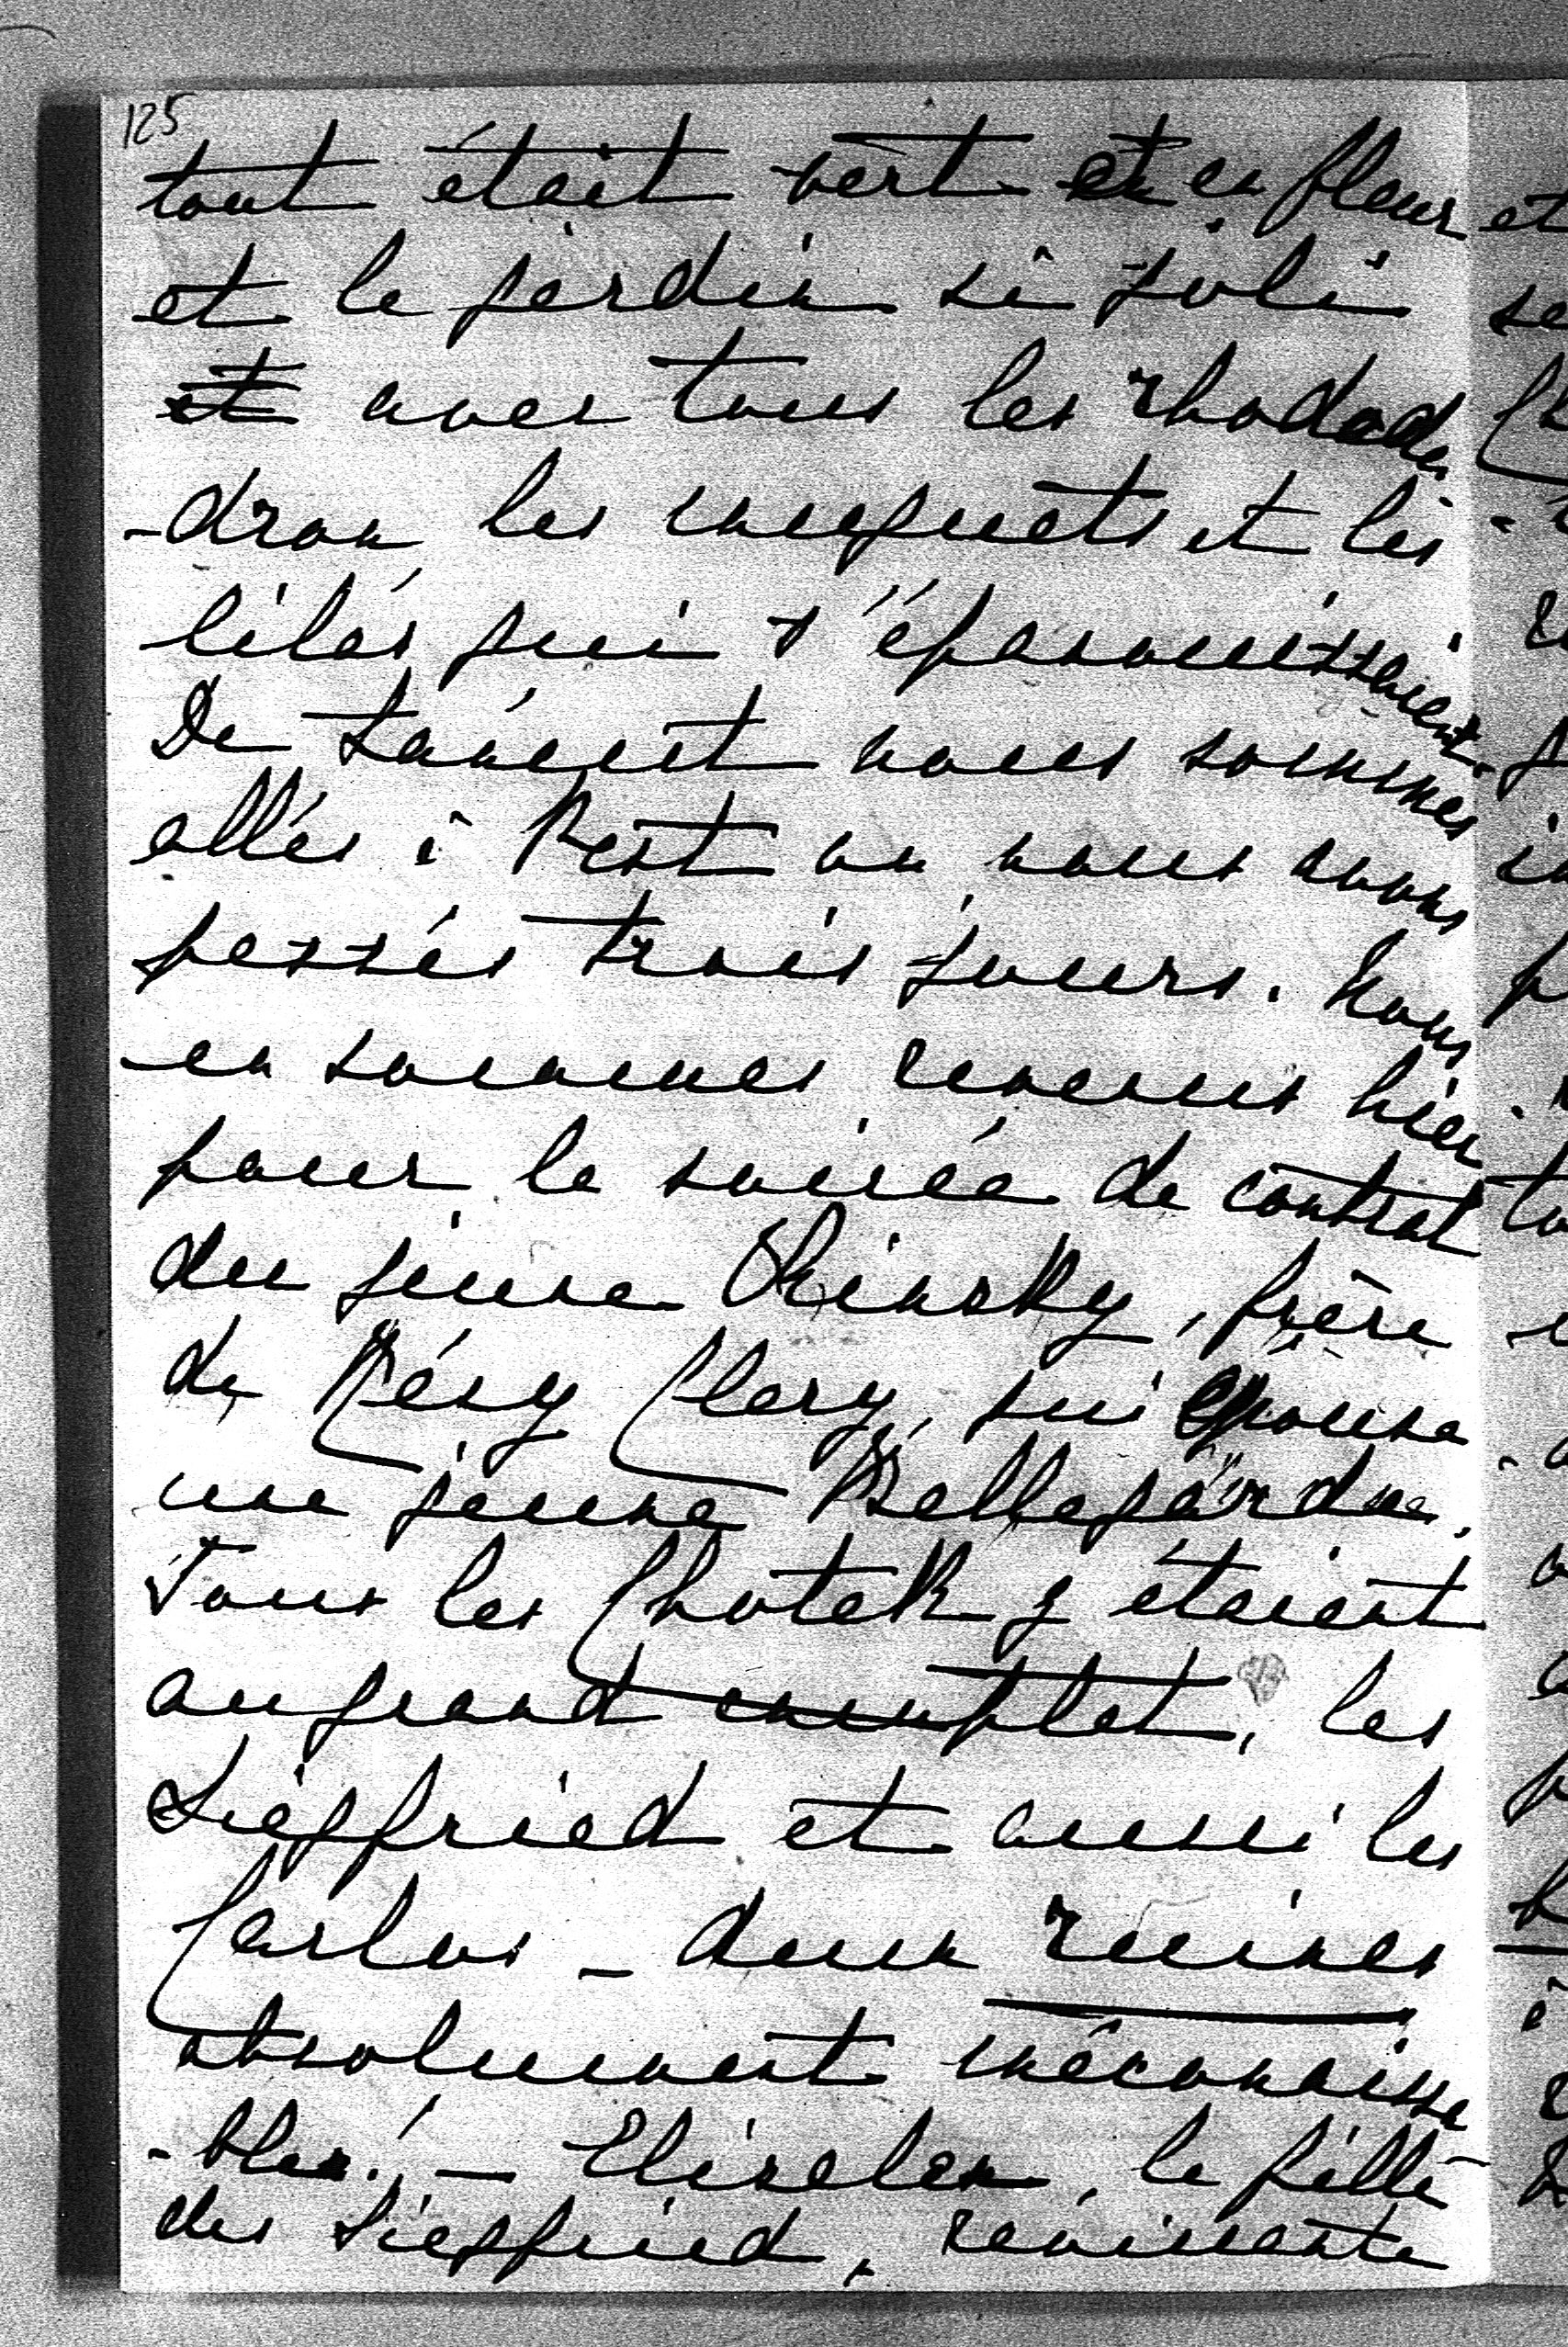 125
tout était vert et en fleur
et le jardin si joli
et avec tous les rhododen
-dron, les muguets et les
lilas qui s'épanouissaient.
De Lancut nous sommes
allés à Pest où nous avons
passés trois jours. Nous
en sommes revenus hier
pour la soirée de contrat
du jeune Khinsky, frère
de Résy Clary, qui épouse
une jeune Bellegarde.
Tous les Chotek y étaient
au grand complet, les
Siegfried et aussi les
Carlos - deux ruines
absolument méconnaissa
-bles. - Eliselex, la fille
des Siegfried, ravissante